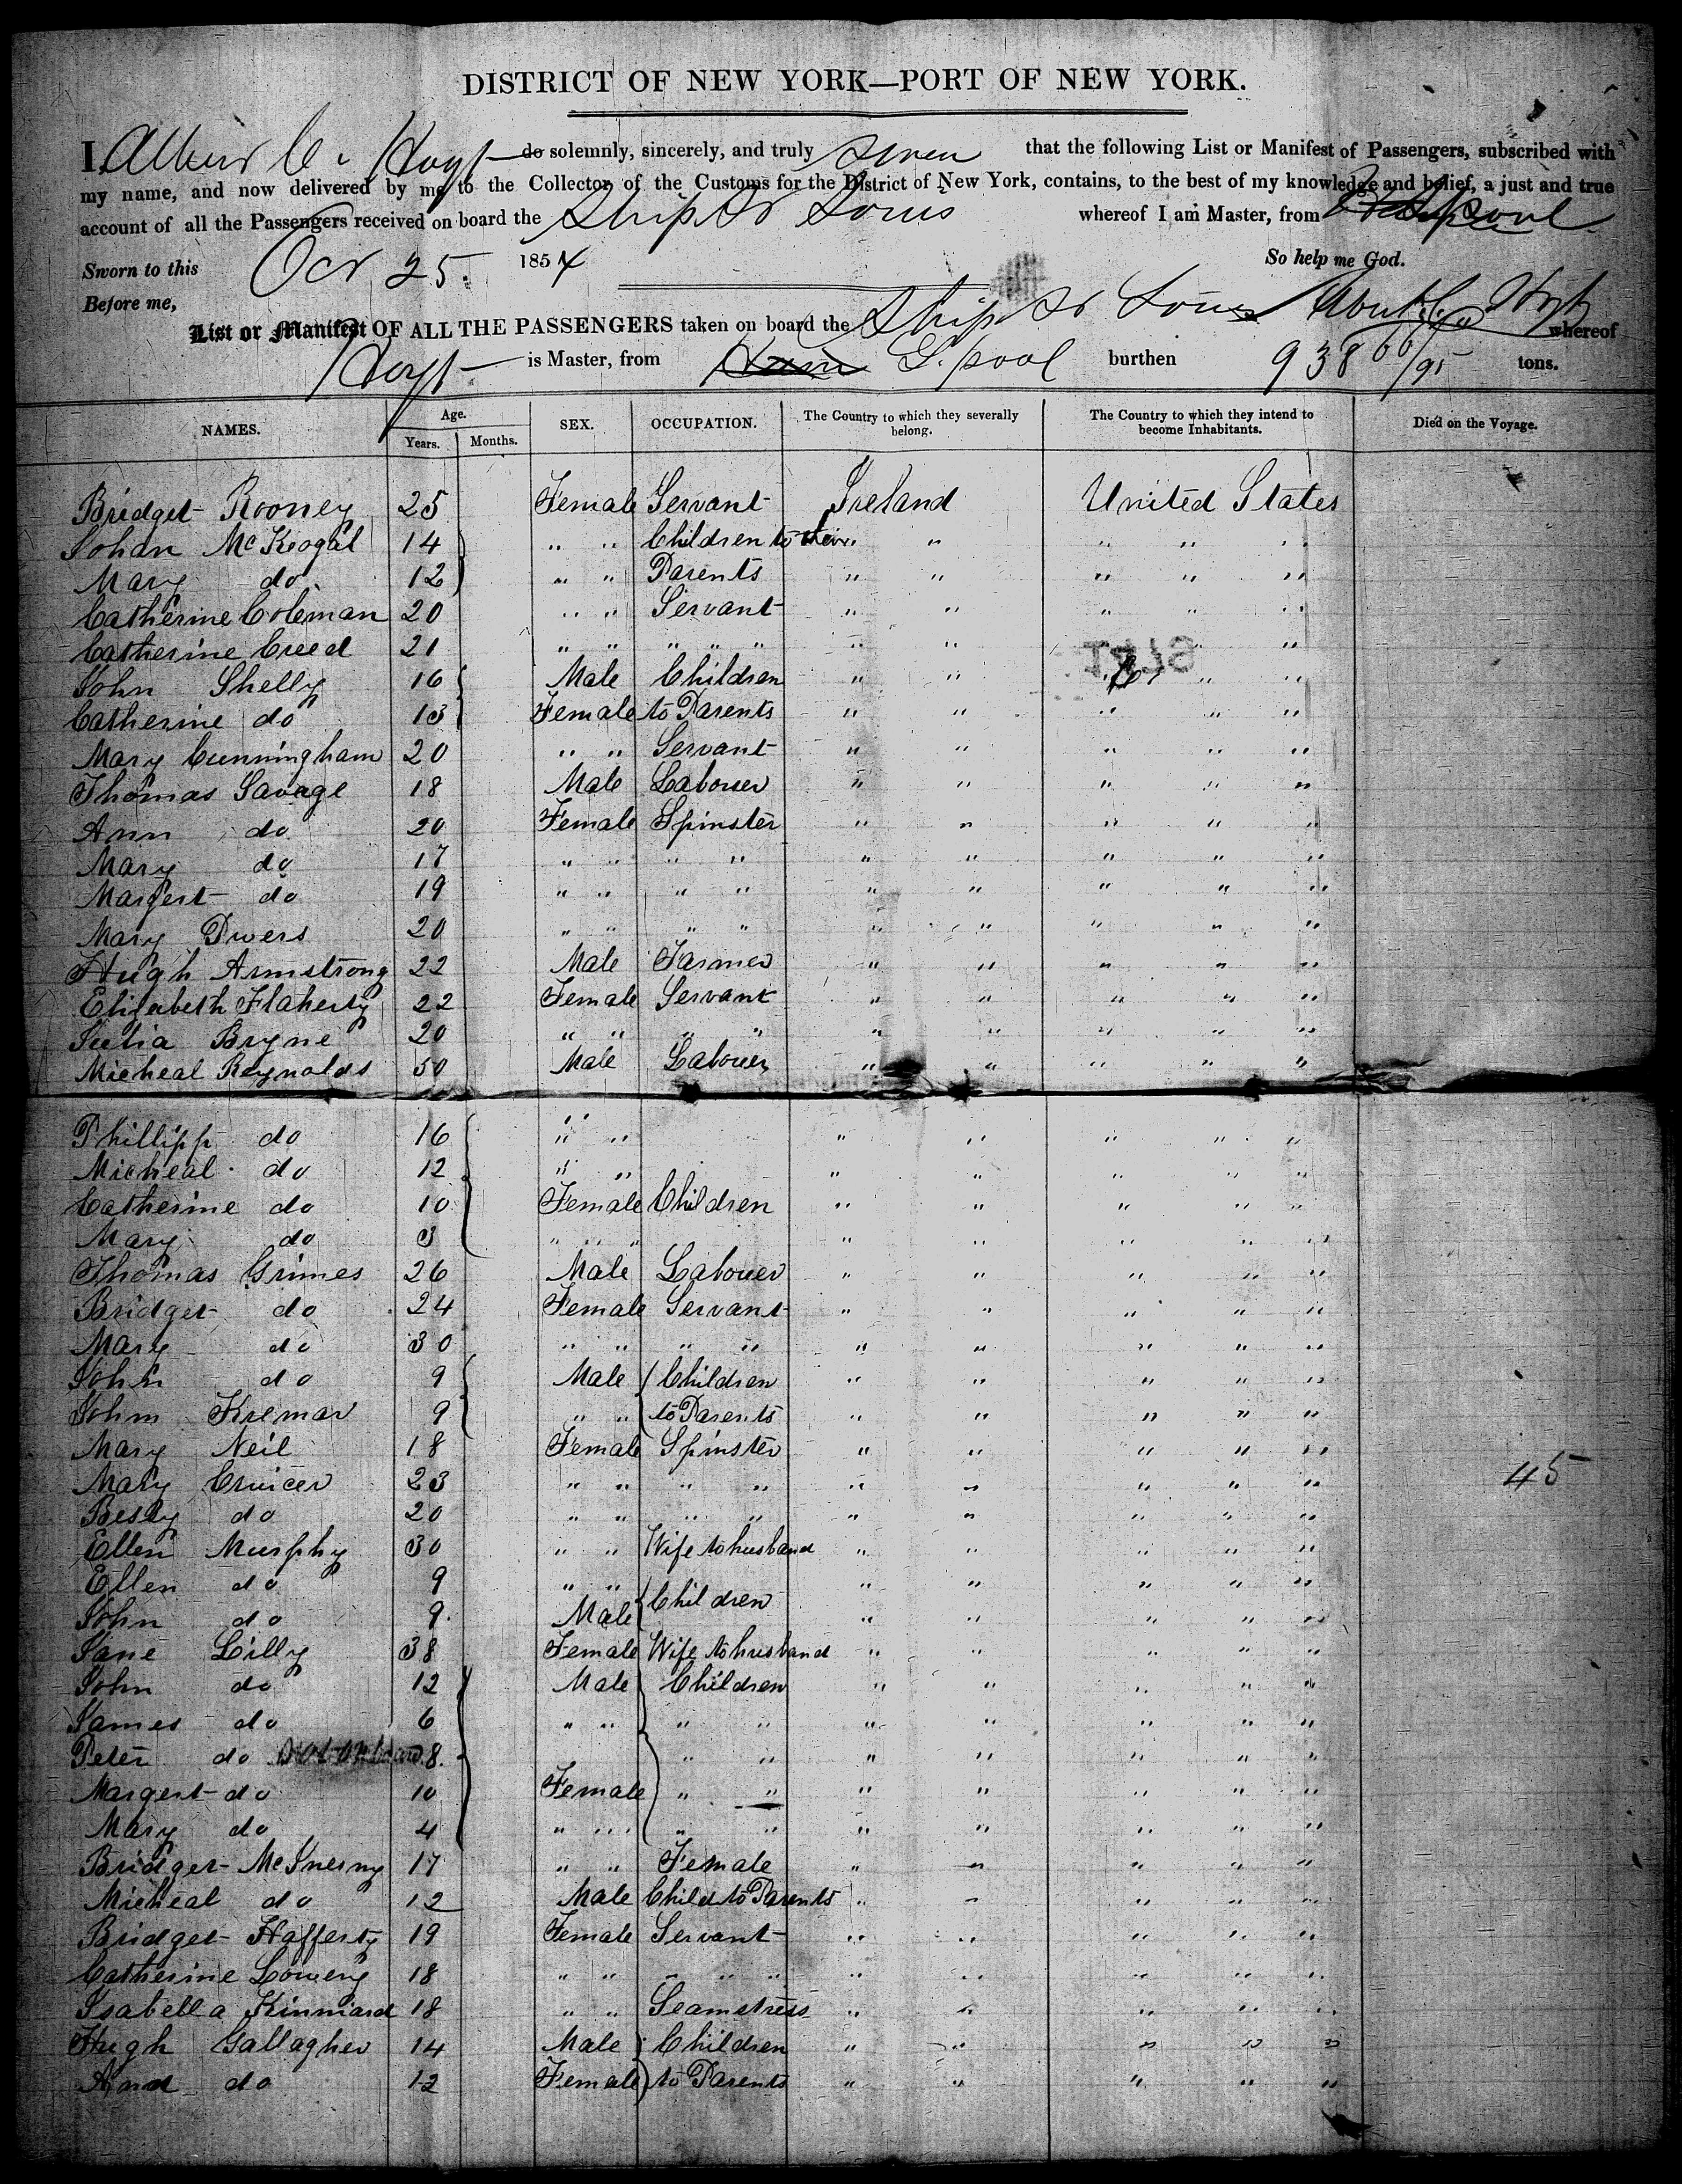 DISTRICT OF NEW YORK—PORT OF NEW YORK.
I, Albert C. Hoyt do solemnly, sincerely, and truly swear that the following List or Manifest of Passengers, subscribed with
my name, and now delivered by me to the Collector of the Customs for the District of New York, contains, to the best of my knowledge and belief, a just and true
account of all the Passengers received on board the Ship St Louis whereof I am Master, from Liverpool
Sworn to this Oct 25. 1854 So help me God.
Before me,
List or Manifest OF ALL THE PASSENGERS taken on board the Ship St Louis whereof
Hoyt is Master, from L.pool burthen 938 66/95 tons.
NAMES. Age. Years. Months. SEX. OCCUPATION. The Country to which they severally belong. The Country to which they intend to become Inhabitants. Died on the Voyage.
Bridget Rooney 25 Female Servant Ireland United States
Johan McKeogal 14 " " Children to their " " " " "
Mary do 12 " " Parents " " " " "
Catherine Coleman 20 " " Servant " " " " "
Catherine Creed 21 " " " " " " " " "
John Shelly 16 Male Children " " " " "
Catherine do 13 Female to Parents " " " " "
Mary Cunningham 20 " " Servant " " " " "
Thomas Savage 18 Male Labouer " " " " "
Ann do 20 Female Spinster " " " " "
Mary do 17 " " " " " " " " "
Margert do 19 " " " " " " " " "
Mary Pwers 20 " " " " " " " " "
Hugh Armstrong 22 Male Farmer " " " " "
Elizabeth Flaherty 22 Female Servant " " " " "
Julia Bryne 20 " " " " " " " " "
Micheal Reynolds 50 Male Labouer " " " " "
Phillipp do 16 " " " " " " "
Micheal do 12 " " " " " " "
Catherine do 10 Female Children " " " " "
Mary do 3 " " " " " " " "
Thomas Grimes 26 Male Labouer " " " " "
Bridget do 24 Female Servant " " " " "
Mary do 30 " " " " " " " " "
John do 9 Male Children " " " " "
John Kremar 9 " " to Parents " " " " "
Mary Neil 18 Female Spinster " " " " "
Mary Cruicer 23 " " " " " " " " " 45
Bessy do 20 " " " " " " " " "
Ellen Murphy 30 " " Wife to husband " " " " "
Ellen do 9 " " Children " " " " "
John do 9 Male " " " " "
Jane Lilly 38 Female Wife to husband " " " " "
John do 12 Male Children " " " " "
James do 6 " " " " " " " " "
Peter do not on board 8 " " " " " " "
Margert do 10 Female " " " " " " "
Mary do 4 " " " " " " " " "
Bridget McInerny 17 " " Female " " " " "
Micheal do 12 Male Child to Parents " " " " "
Bridget Hafferty 19 Female Servant " " " " "
Catherine Lowery 18 " " " " " " " " " "
Isabella Kinniard 18 " " Seamstress " " " " "
Hugh Gallagher 14 Male Children " " " " "
Annd do 12 Female to Parents " " " " "